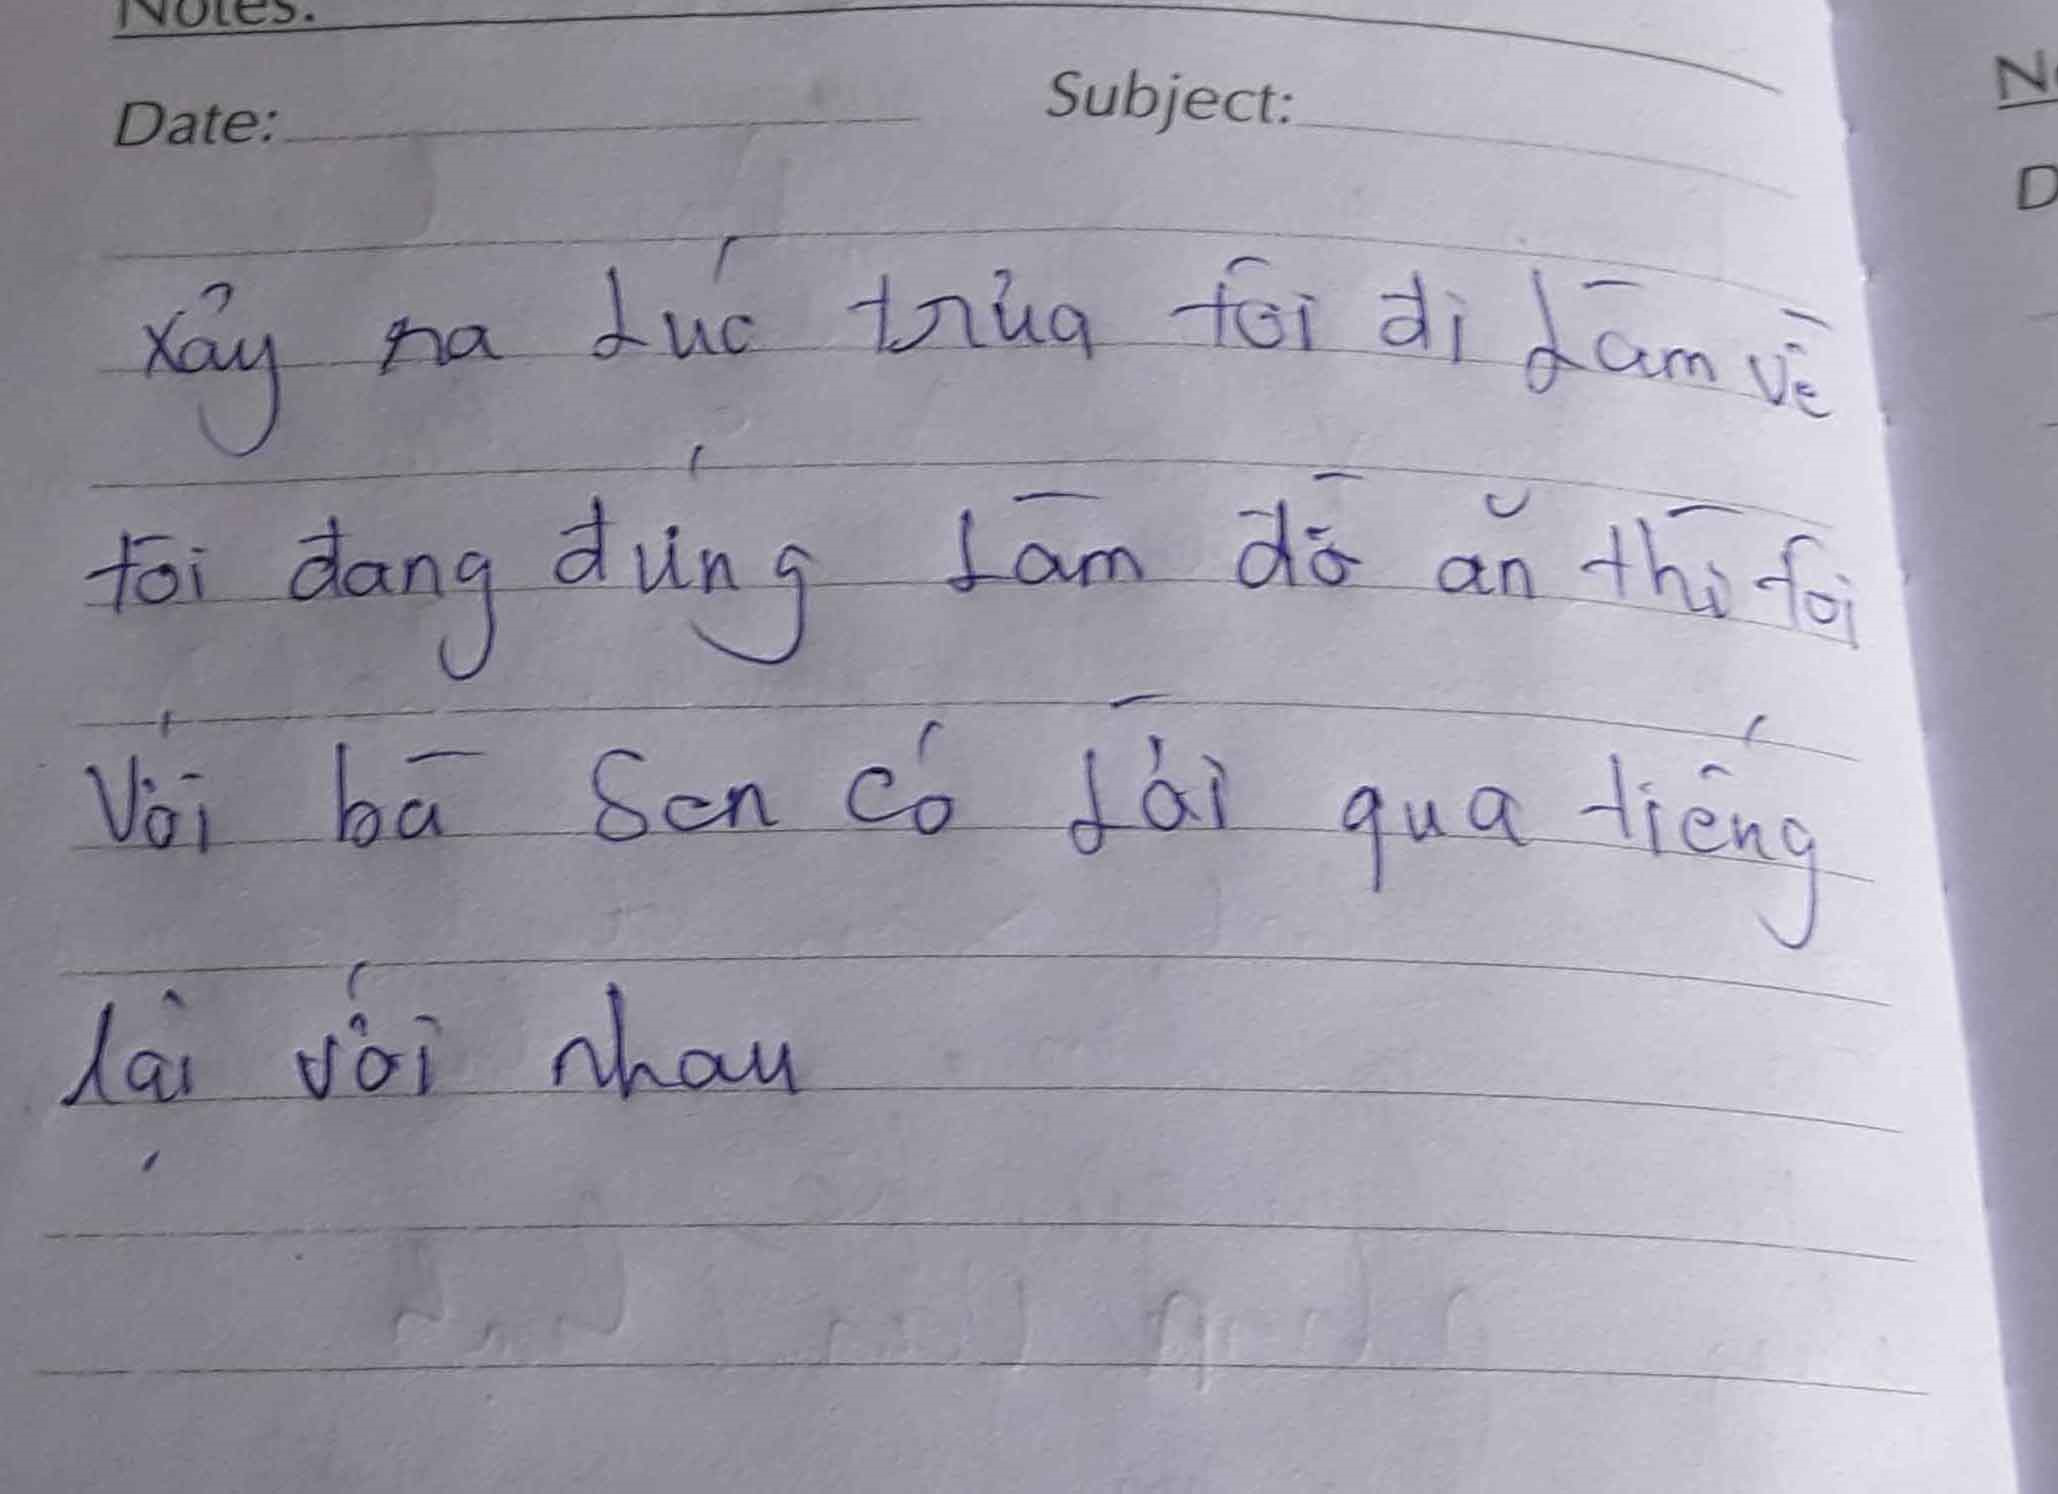 Notes:
Date: Subject:
xảy ra lúc trưa tôi đi làm về
tôi đang đứng làm đồ ăn thì tôi
Với bà Sen có lời qua tiếng
lại với nhau